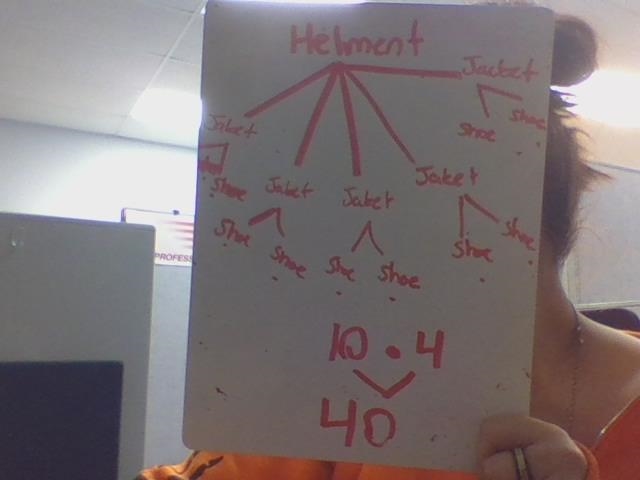 Helment
Jacket
Shoe
Shoe
Jaket
Shoe
Jaket
Jaket
Jaket
Shoe
Shoe
Shoe
Shoe
Shoe
Shoe
PROFESS
10 . 4
40